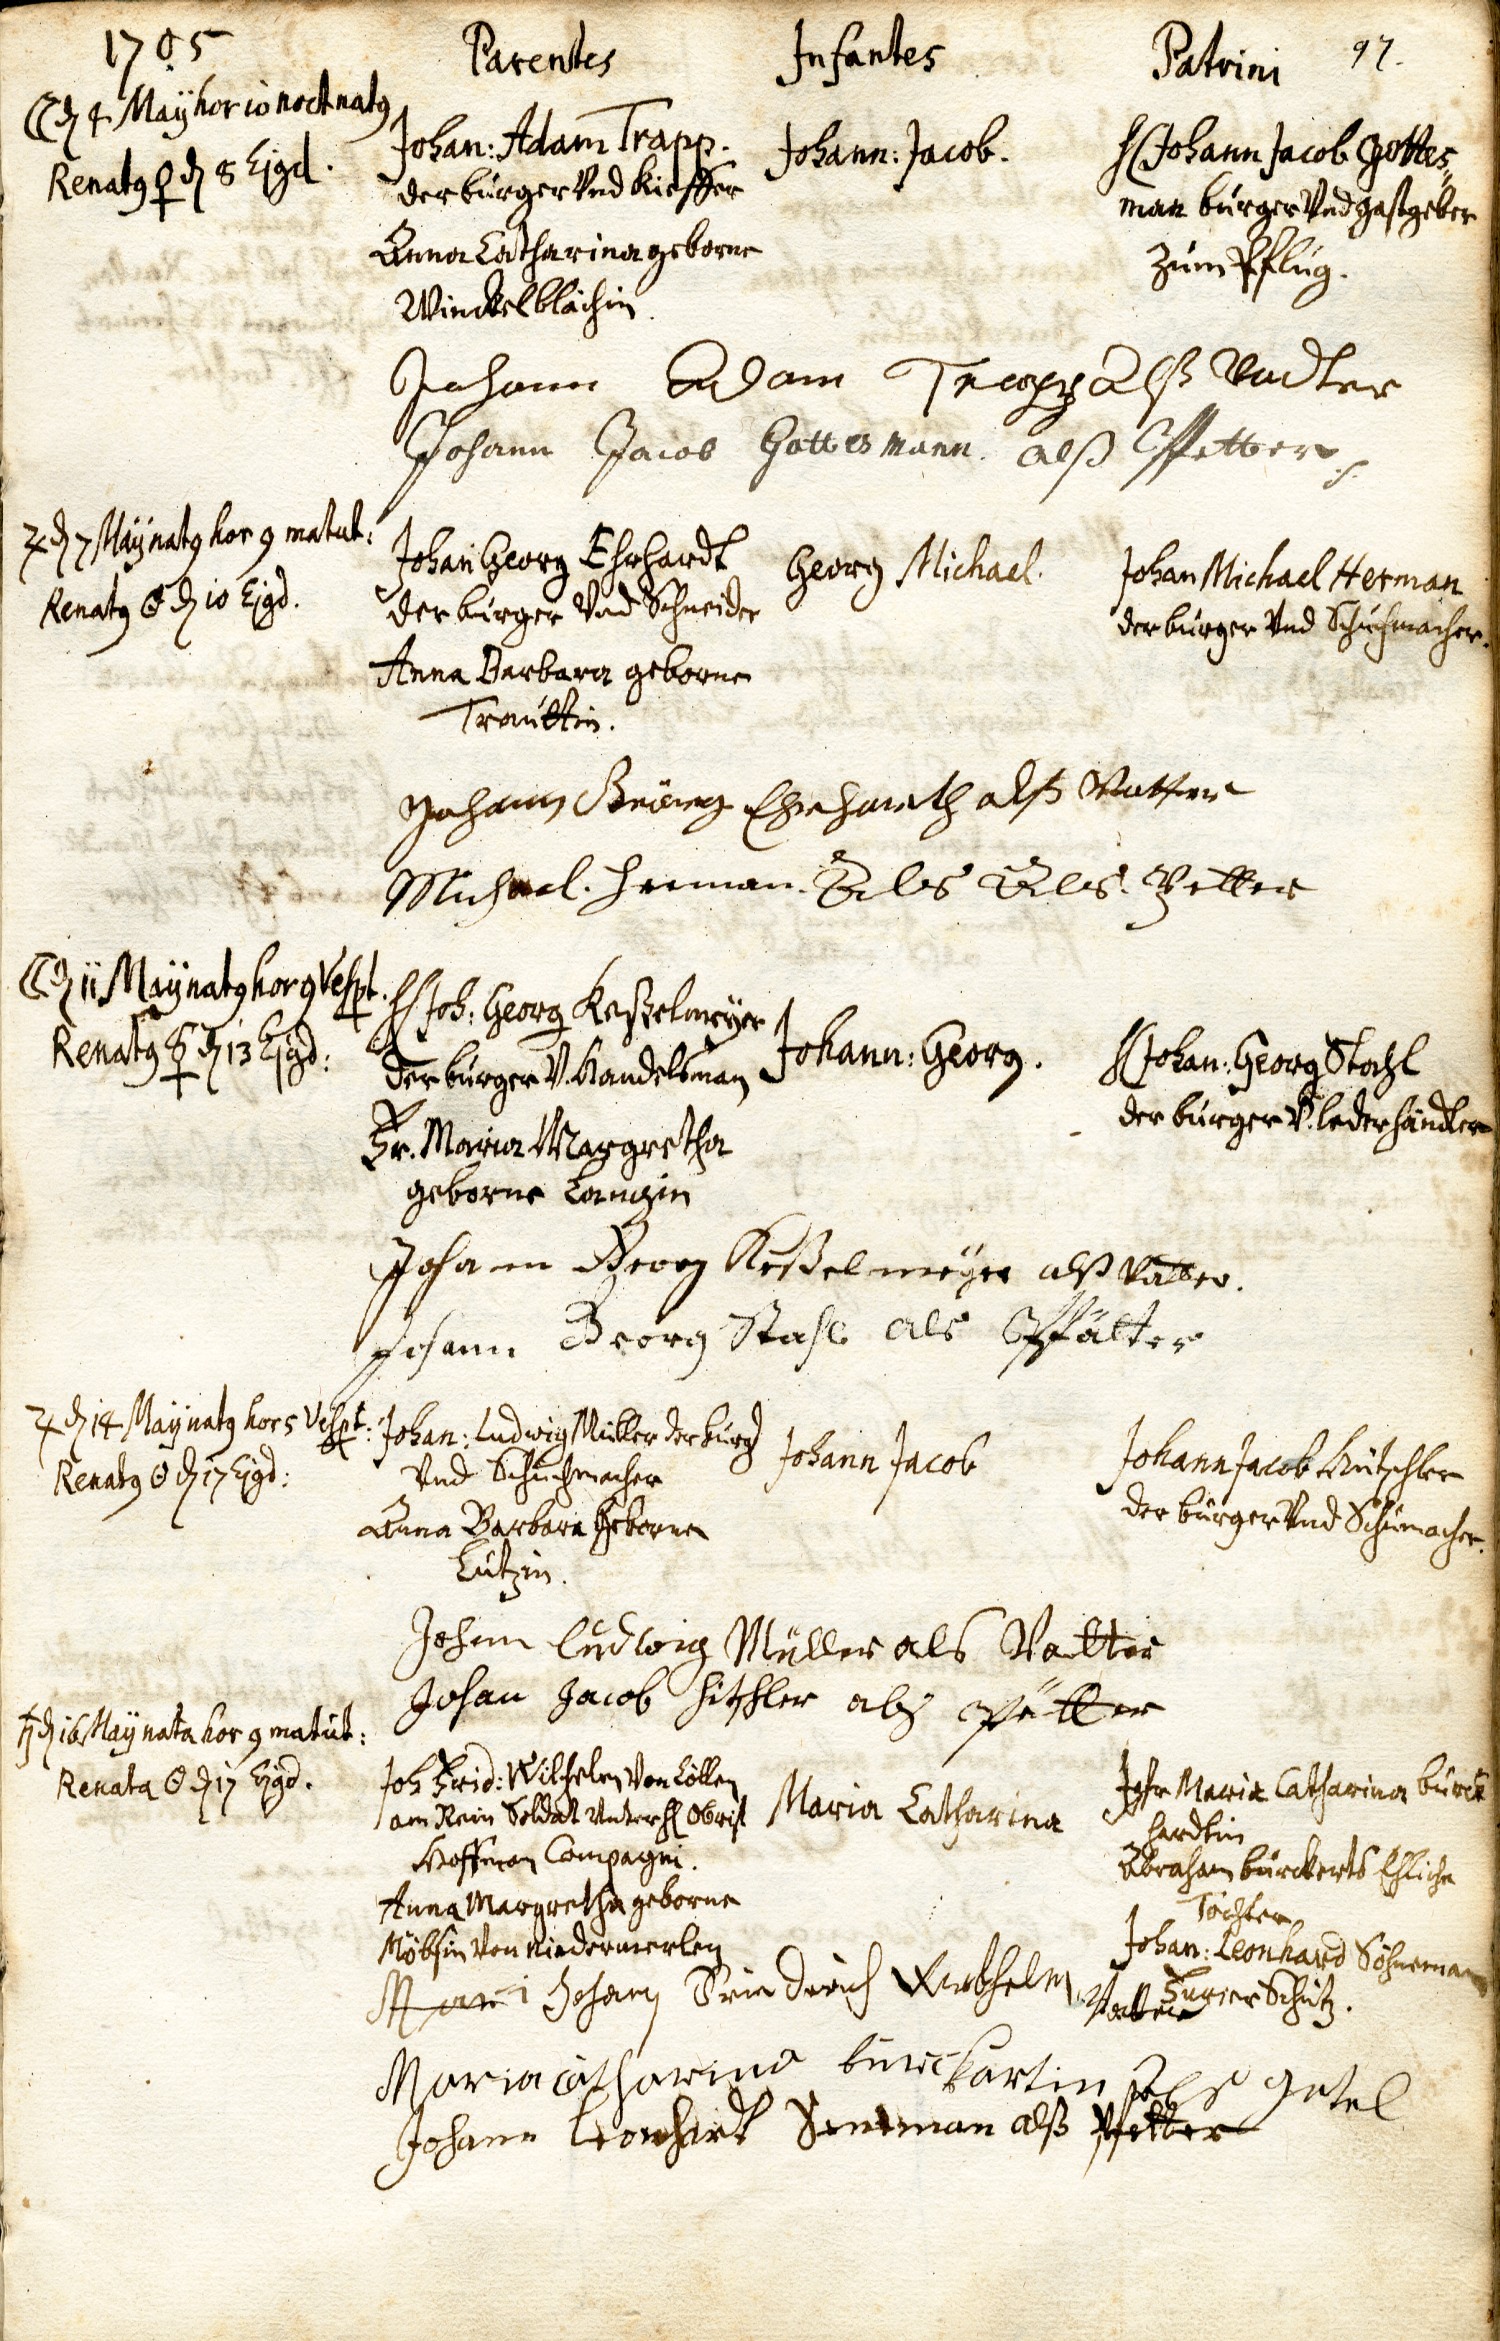 1705 Parentes Infantes Patrini 97.
☾ d 4 Maÿ hor 10 noct natg
Renatg ♀ d 8 Ejgd.
Johan: Adam Trapp.
der burger Vnd Kieffer
Anna Catharina geborne
Winckelblächin.
Johann: Jacob.
H Johann Jacob Gottes„
man burger Vnd gastgeber
zum Pflug.
Johann Adam Trapp Alß Vadter
Johann Jacob Gottesmann. alß Pfetter
♃ d 7 Maÿ natg hor 9 matut:
Renatg ☉ d 10 Ejgd.
Johan Georg Ehrhardt
der burger Vnd Schneider
Anna Barbara geborne
Trauttin.
Georg Michael.
Johan Michael Herman
der burger Vnd Schuhmacher.
Johann Georg Ehrhardth alß Vatter
Michael. Herman. Als Als. Petter
☾ d 11 Maÿ natg hor 9 Vespt.
Renatg ☿ d 13 Ejgd:
H Joh: Georg Keßelmeyer
der burger V. Handelsman
Fr. Maria Margretha
geborne Langin
Johann: Georg.
H Johan: Georg Stahl
der burger V. lederhändler
Johann Georg Keßelmeÿer alß Vatter.
Johann Georg Stahl als Pfätter
♃ d 14 Maÿ natg hor 5 Vespt:
Renatg ☉ d 17 Ejgd:
Johan: Ludwig Müller der burg
Vnd Schuhmacher
Anna Barbara Geborne
Lutzin.
Johann Jacob
Johann Jacob Hütschler
der burger Vnd Schumacher.
Johan Ludwig Müller als Vatter
Johan Jacob Hitschler als Pfetter
♄ d 16 Maÿ nata hor 9 matut:
Renata ☉ d 17 Ejgd.
Joh Frid: Wilhelm Von Cöllen
am Rein Soldat Vnter H Obrist
Hoffman Compagni.
Anna Margretha geborne
Von Niedermerlen
Maria Catharina
Jgfr Maria Catharina burck
hardtin
Abraham burckerts Ehliche
Tochter
Johan: Leonhard Söhneman
Schütz.
Johann Friedrich Wilhelm Vatter
Maria Catharina burckhartin als getel
Johann Leonhart Seneman alß Pfetter